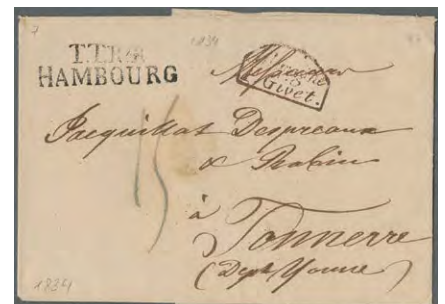 1834
T.T.R.4.
HAMBOURG
Messieurs
Givet.
Jacquillat Despreaux
& Robin
15
à
Tonnerre
(Dept Yonne)
1834